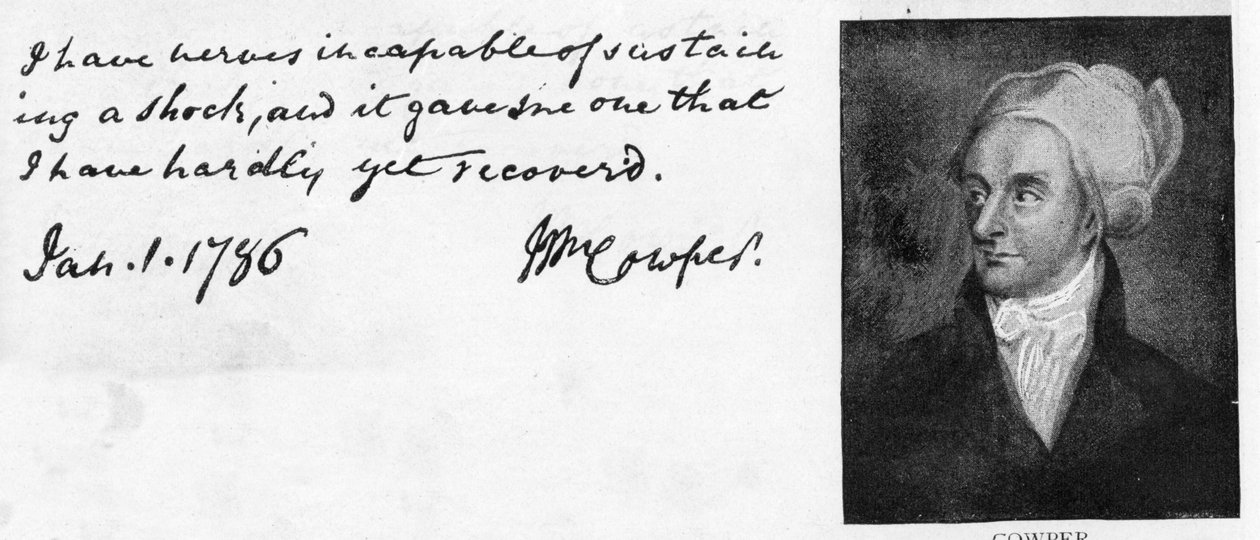 I have nerves incapable of sustain
ing a shock, and it gave me one that
I have hardly yet recover'd.
Jan. 1. 1786
Wm Cowper.
COWPER